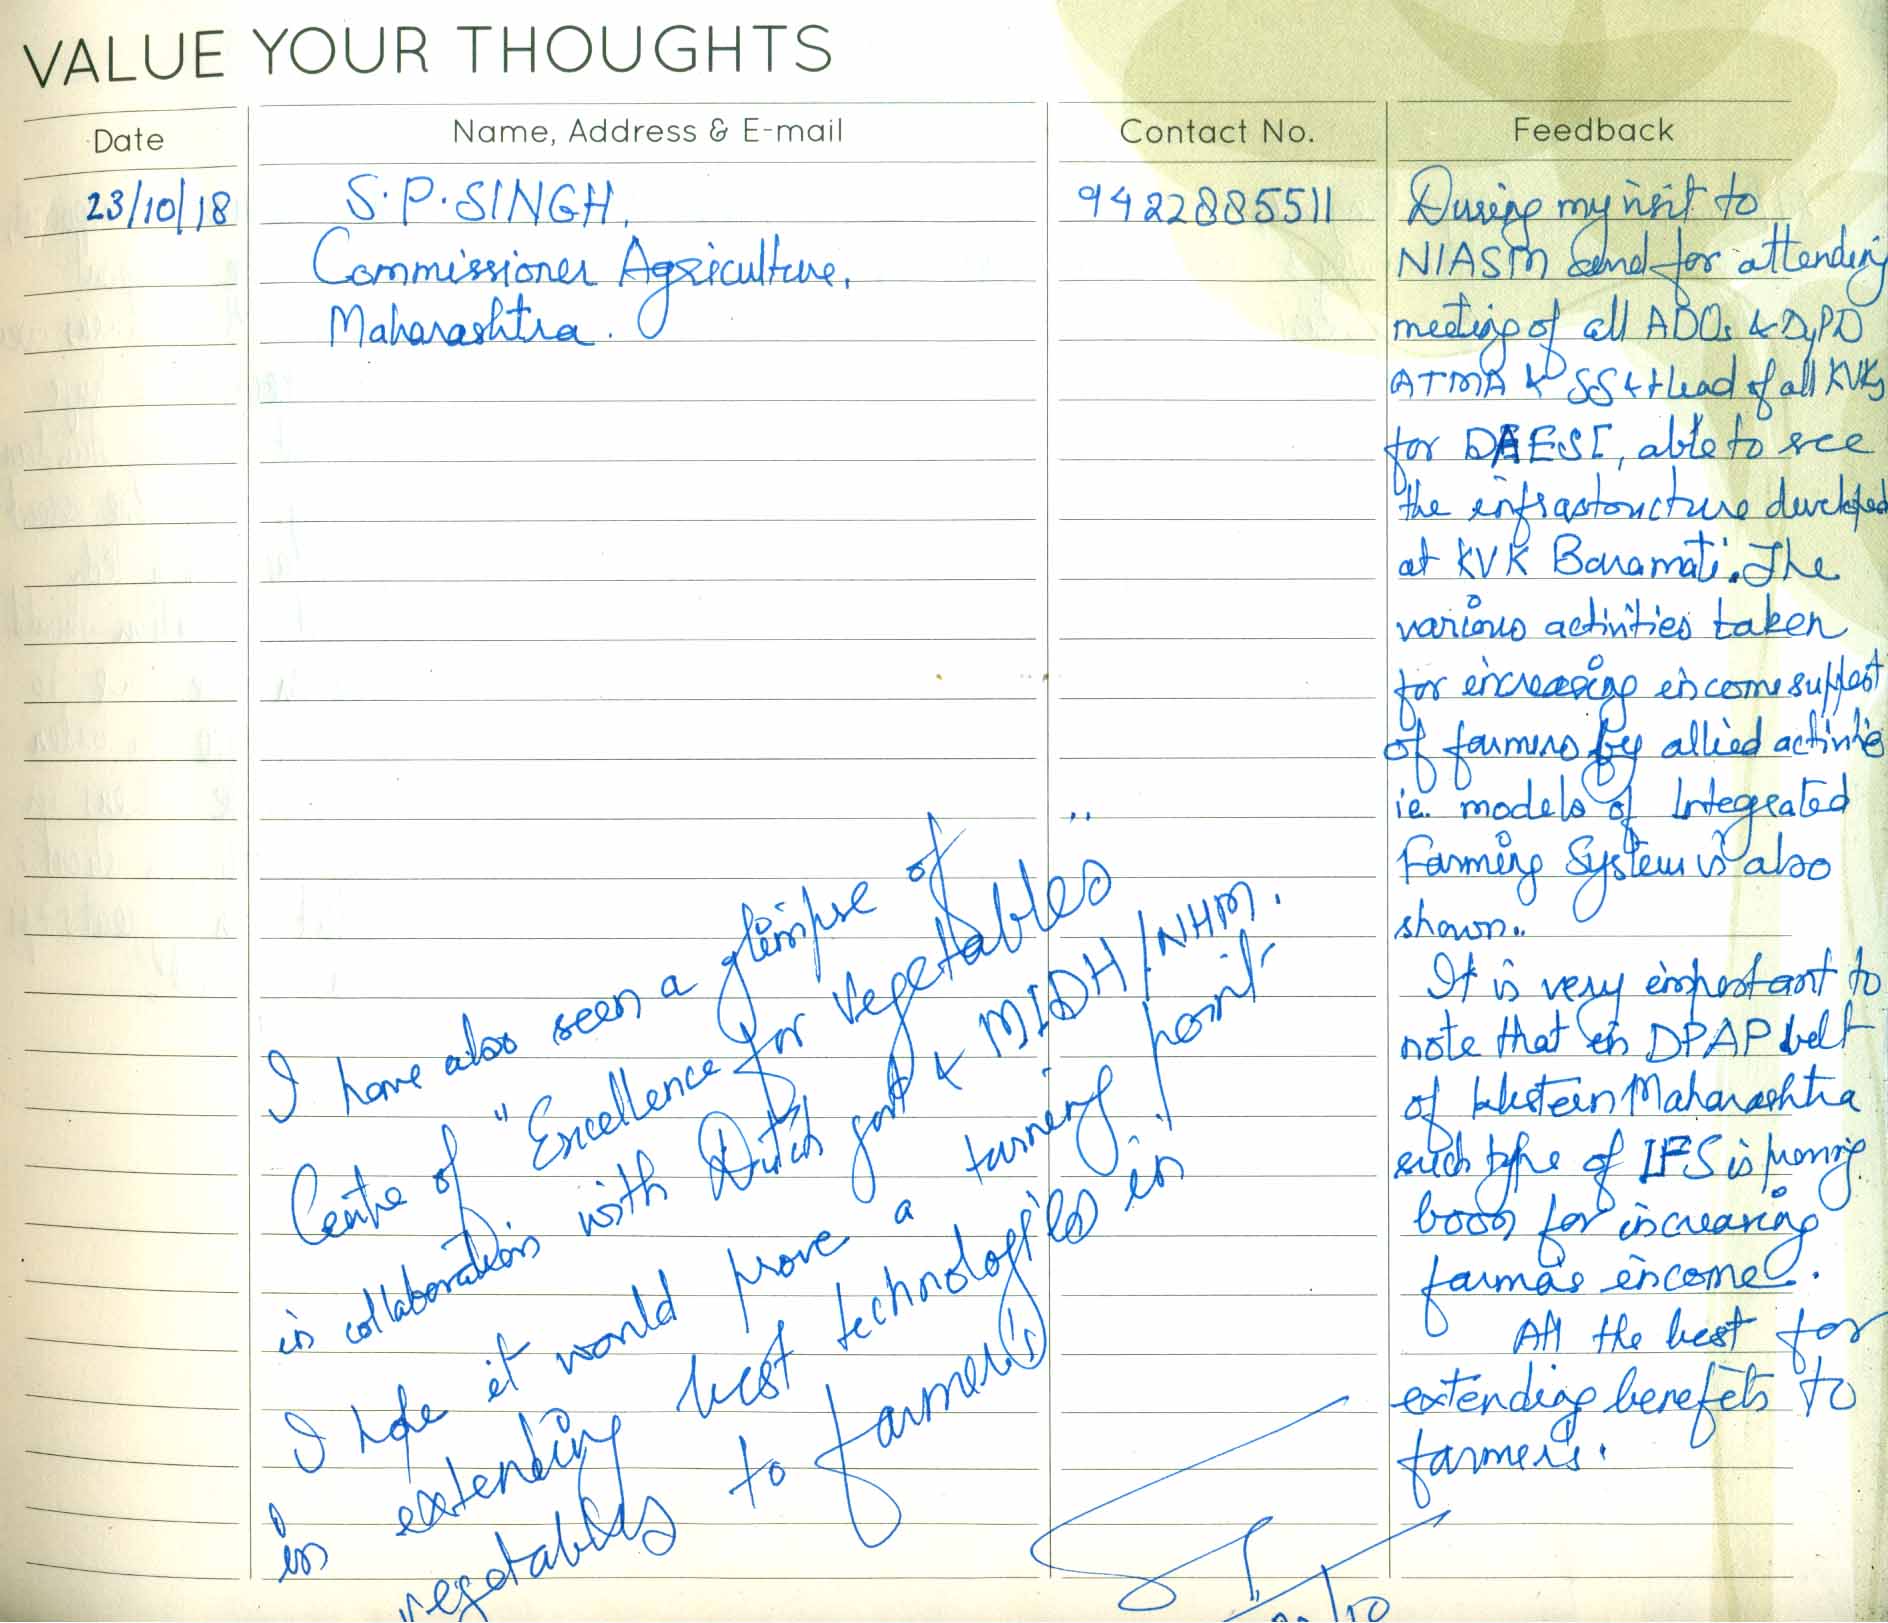 VALUE YOUR THOUGHTS
Date
Name, Address & E-mail
Contact No.
Feedback
23/10/18
S.P.SINGH,
Commissioner Agriculture,
Maharashtra.
9422885511
During my visit to
NIASM and for attending
meeting of all ADOs & DyPD
ATMA & SS & Head of all KVKs
for DAESI, able to see
the infrastructure developed
at KVK Baramati. The
various activities taken
for increasing income support
of farmers by allied activities
i.e. models of Integrated
Farming System is also
shown..
It is very important to
note that in DPAP belt
of Western Maharashtra
such type of IFS is proving
boon for increasing
farmers income.
All the best for
extending benefits to
farmers.
I have also seen a glimpse of
Centre of "Excellence for vegetables"
in collaboration with Dutch govt & MIDH/NHM.
I hope it would prove a turning point
in extending best technologies in
vegetables to farmers